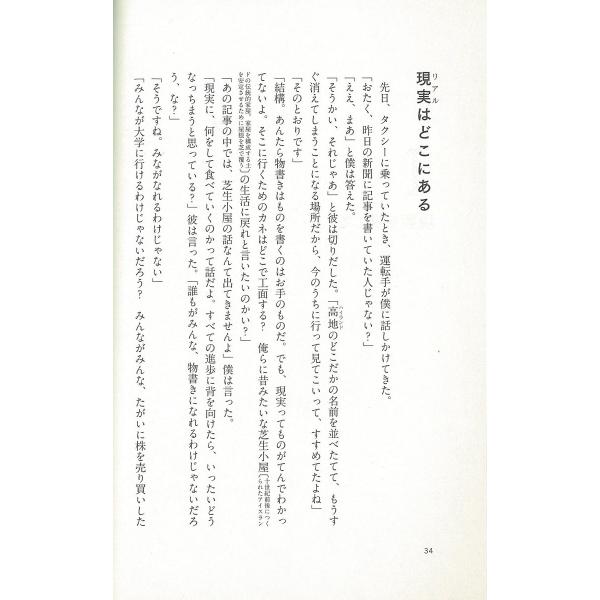 現実はどこにある
リアル
先日、タクシーに乗っていたとき、運転手が僕に話しかけてきた。
「おたく、昨日の新聞に記事を書いていた人じゃない？」
「ええ、まあ」と僕は答えた。
「そうかい、それじゃあ」と彼は切りだした。「高地のどこだかの名前を並べたてて、もうす
ハイランド
ぐ消えてしまうことになる場所だから、今のうちに行って見てこいって、すすめてたよね」
「そのとおりです」
「結構。あんたら物書きはものを書くのはお手のものだ。でも、現実ってものがてんでわかっ
てないよ。そこに行くためのカネはどこで工面する？　俺らに昔みたいな芝生小屋〔十世紀前後につくられたアイスラン
ドの伝統的家屋。家屋を構成する土を安定させるために屋根を芝で覆う〕の生活に戻れと言いたいのかい？」
「あの記事の中では、芝生小屋の話なんて出てきませんよ」僕は言った。
「現実に、何をして食べていくのかって話だよ。すべての進歩に背を向けたら、いったいどう
なっちまうと思っている？」彼は言った。「誰もがみんな、物書きになれるわけじゃないだろ
う、な？」
「そうですね。みながなれるわけじゃない」
「みんなが大学に行けるわけじゃないだろう？　みんながみんな、たがいに株を売り買いした
34